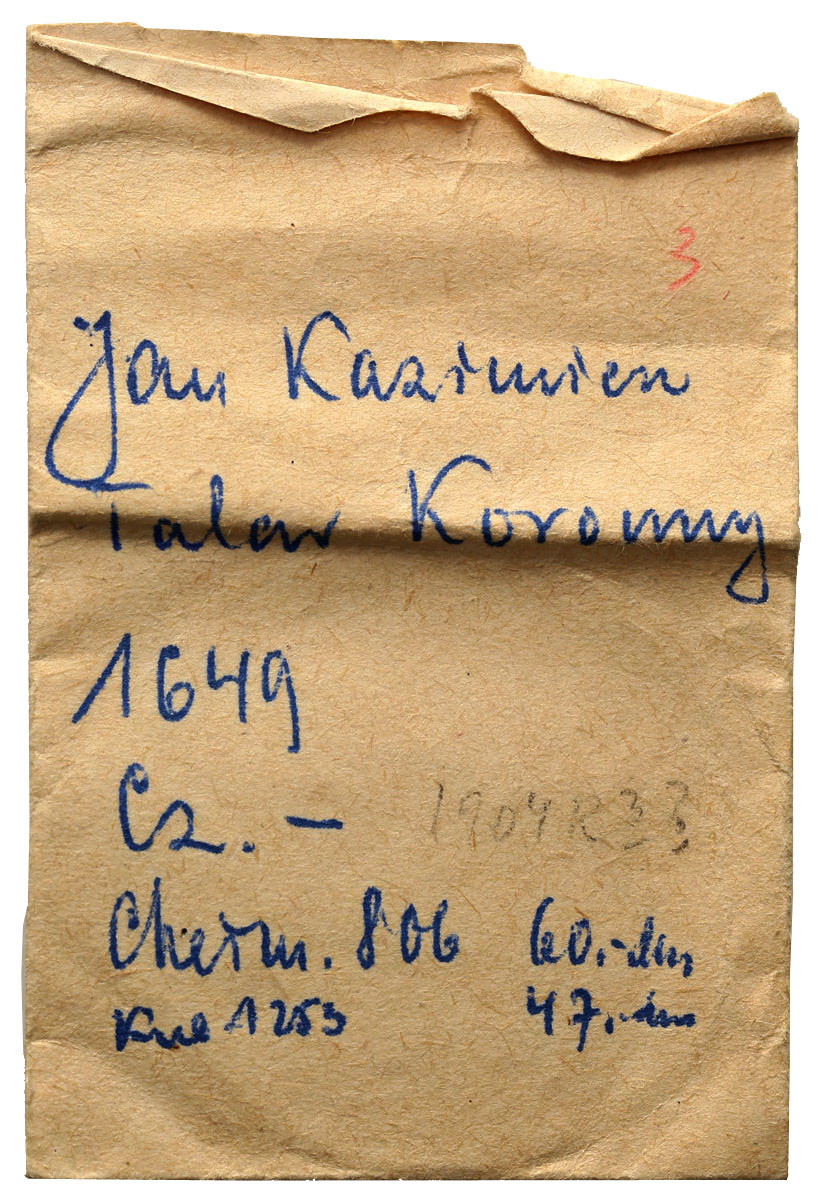 3
Jan Kazimierz
Talar Koronny
1649
Cz. –
1904 R 33
Chełm. 806 60.-
1253 47.-